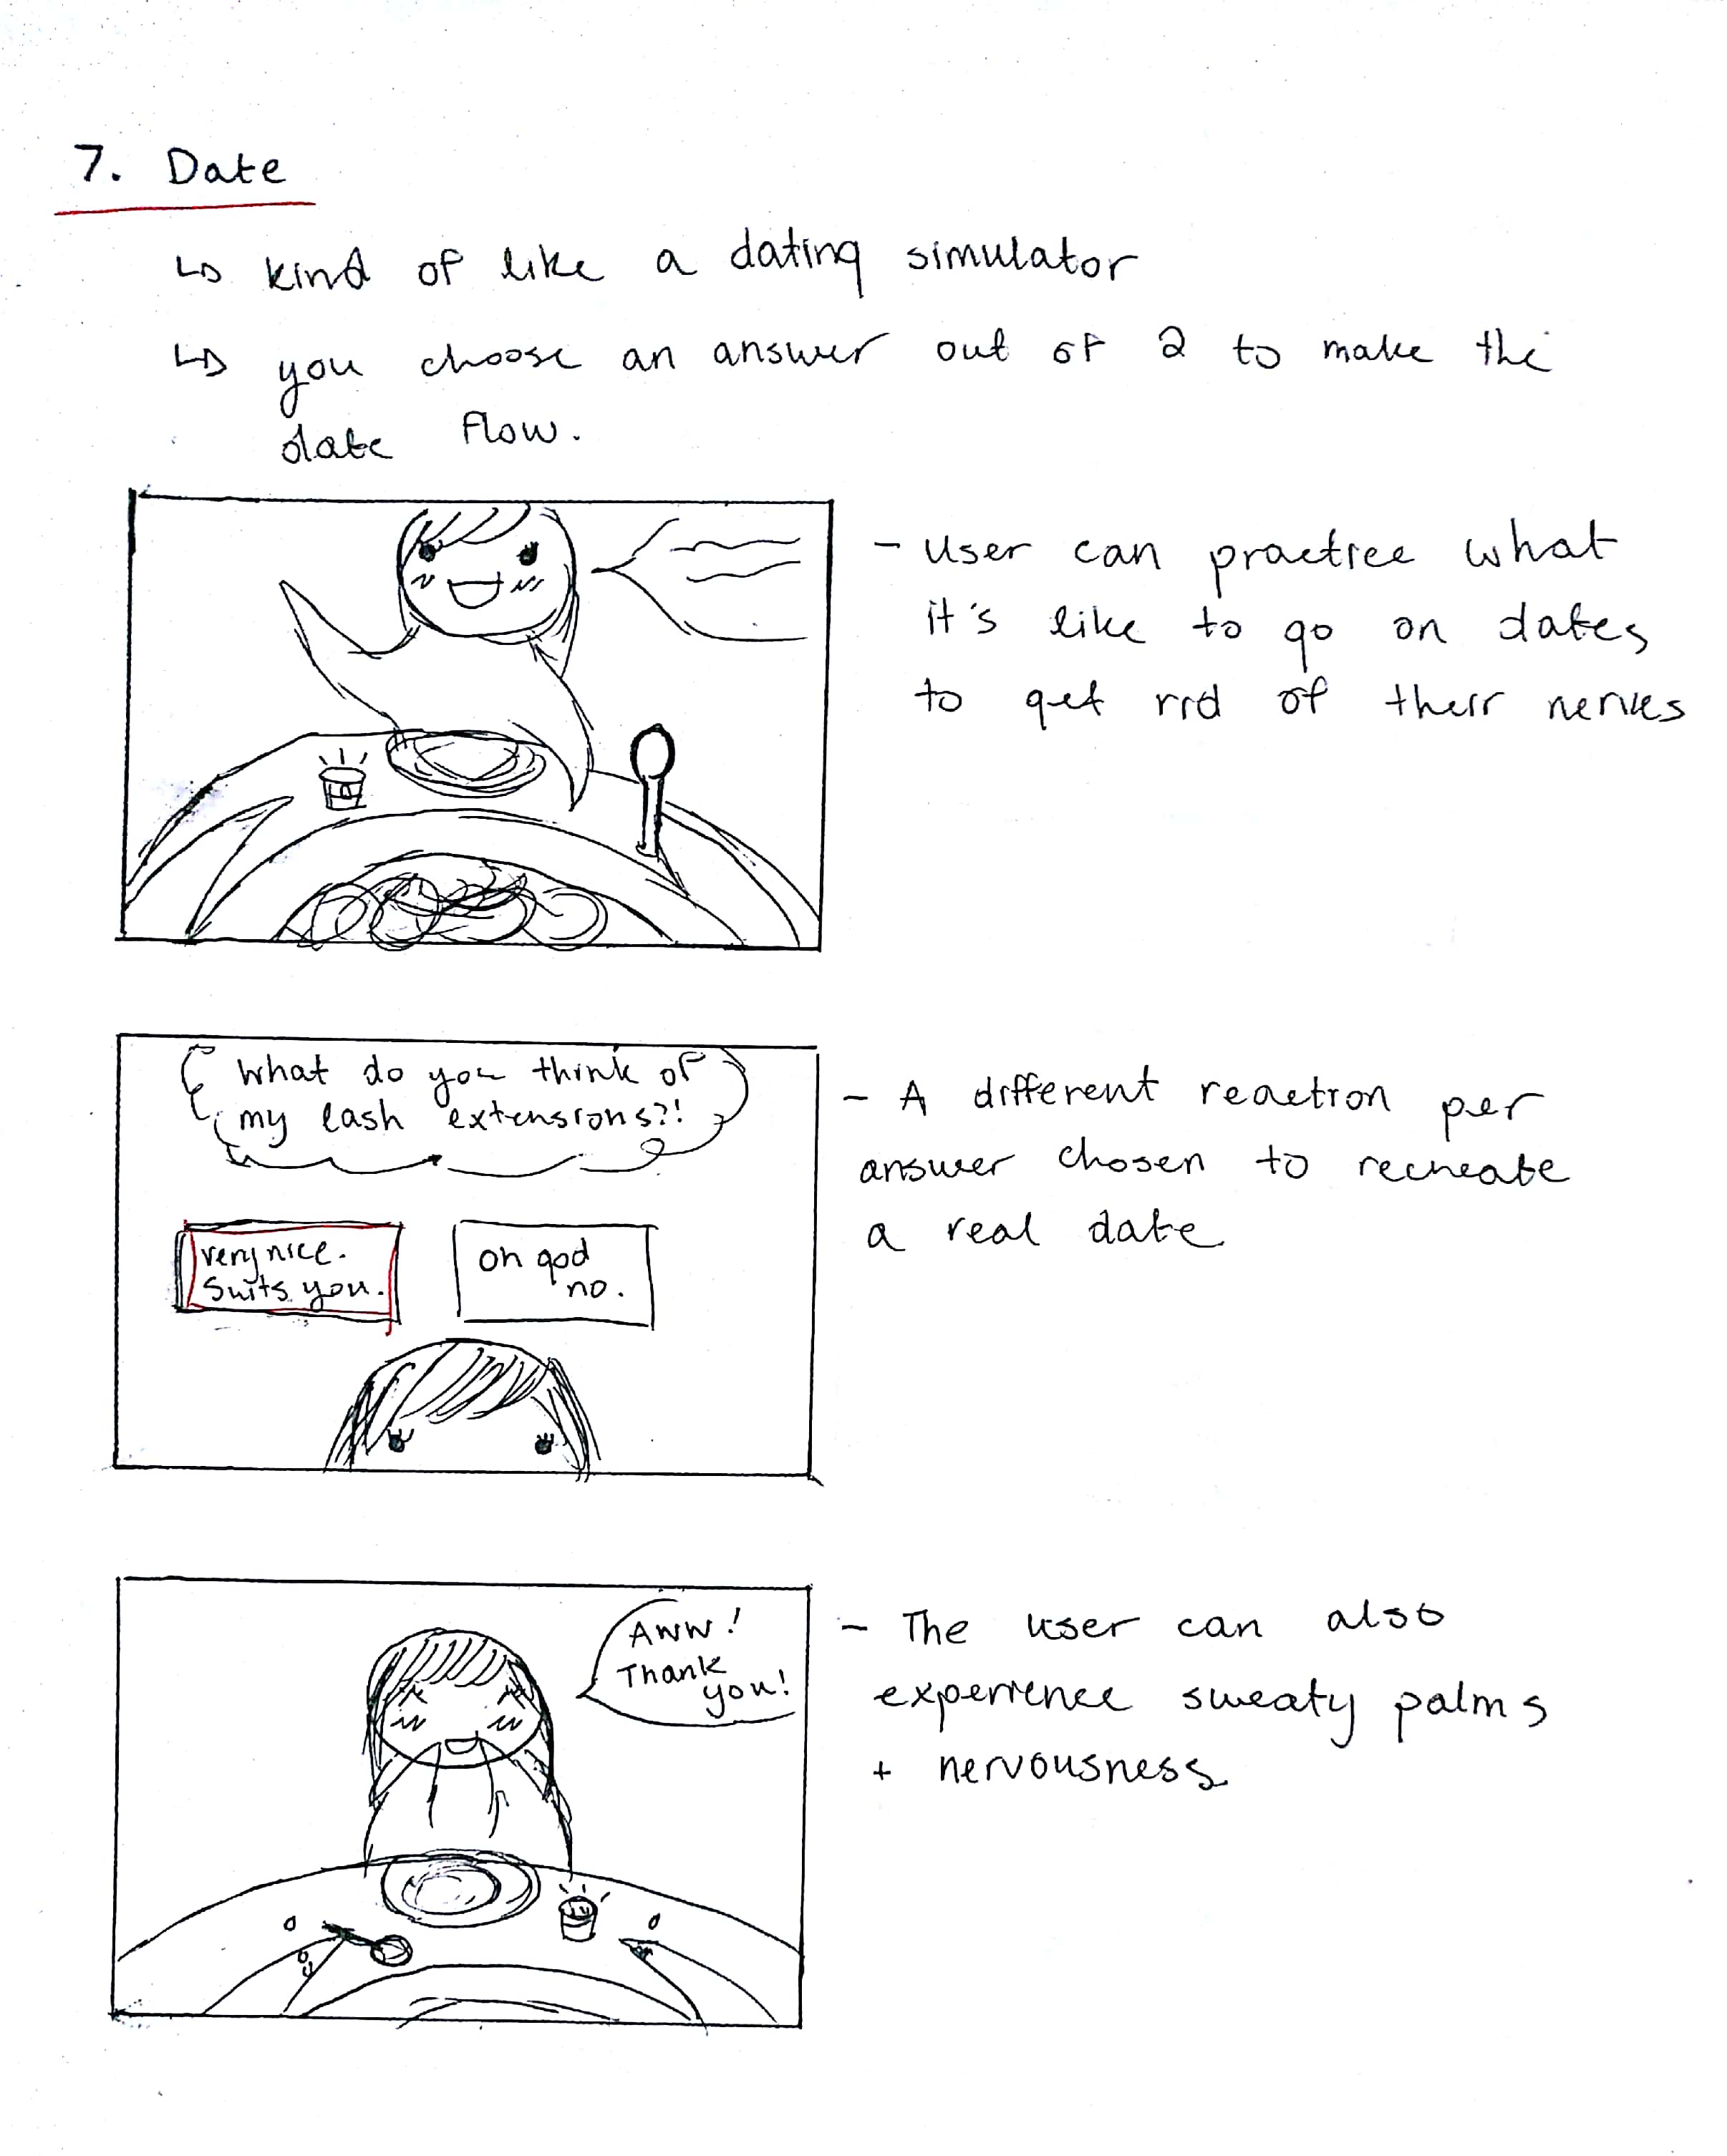 7. Date
↳ kind of like a dating simulator
↳ you choose an answer out of 2 to make the
date flow.
- User can practice what
it's like to go on dates
to get rid of their nerves
What do you think of
my lash extensions?!
very nice.
Suits you.
oh god
no.
- A different reaction per
answer chosen to recreate
a real date
Aww!
Thank
you!
- The user can also
experience sweaty palms
+ nervousness